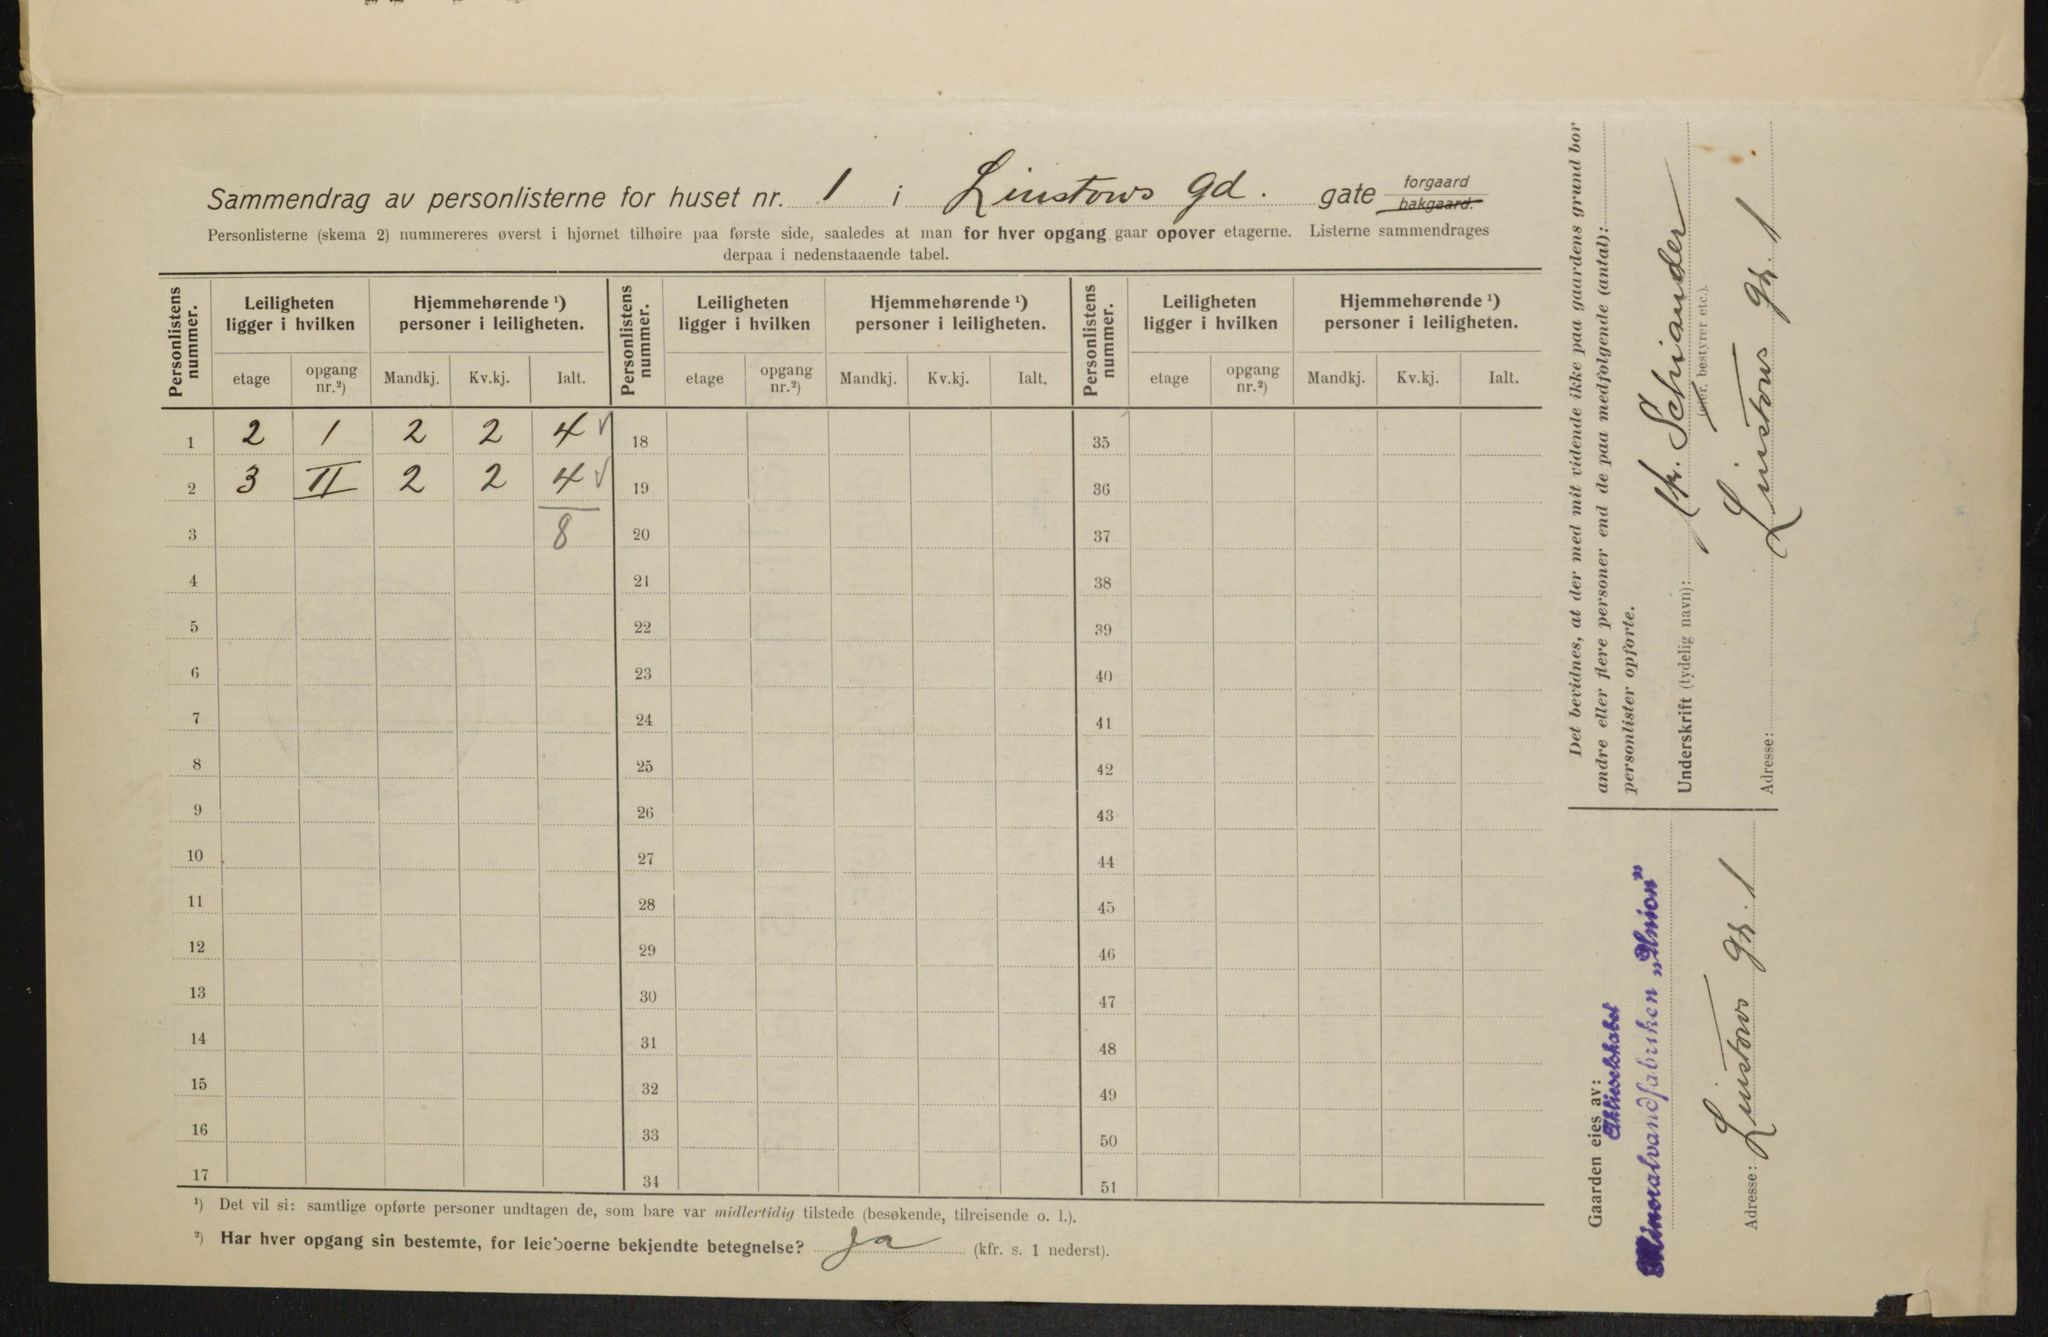 Sammendrag av personlisterne for huset nr. 1 i Linstows gd. gate forgaard bakgaard.
Personlisterne (skema 2) nummereres øverst i hjørnet tilhøire paa første side, saaledes at man for hver opgang gaar opover etagerne. Listerne sammendrages
derpaa i nedenstaaende tabel.
Personlistens nummer. Leiligheten ligger i hvilken Hjemmehørende ¹) personer i leiligheten. Personlistens nummer. Leiligheten ligger i hvilken Hjemmehørende ¹) personer i leiligheten. Personlistens nummer. Leiligheten ligger i hvilken Hjemmehørende ¹) personer i leiligheten.
etage opgang nr.²) Mandkj. Kv.kj. Ialt. etage opgang nr.²) Mandkj. Kv.kj. Ialt. etage opgang nr.²) Mandkj. Kv.kj. Ialt.
1 2 1 2 2 4 18 35
2 3 II 2 2 4 19 36
3 8 20 37
4 21 38
5 22 39
6 23 40
7 24 41
8 25 42
9 26 43
10 27 44
11 28 45
12 29 46
13 30 47
14 31 48
15 32 49
16 33 50
17 34 51
¹) Det vil si: samtlige opførte personer undtagen de, som bare var midlertidig tilstede (besøkende, tilreisende o. l.).
²) Har hver opgang sin bestemte, for leieboerne bekjendte betegnelse? Ja (kfr. s. 1 nederst).
Det bevidnes, at der med mit vidende ikke paa gaardens grund bor
andre eller flere personer end de paa medfølgende (antal):
personlister opførte.
Underskrift (tydelig navn): Schiander
(eier, bestyrer etc.).
Adresse: Linstows gt. 1
Gaarden eies av:
Aktieselskabet
Mineralvandfabriken „Union”
Adresse: Linstows gt. 1